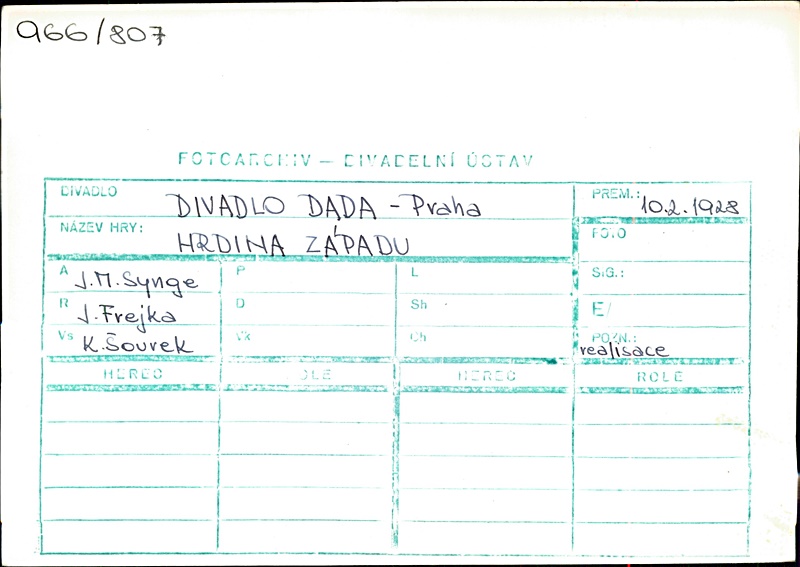 966/807
FOTOARCHIV – DIVADELNÍ ÚSTAV
DIVADLO DIVADLO DADA - Praha PREM.: 10.2.1928
NÁZEV HRY: HRDINA ZÁPADU FOTO
A J.M.Synge P L SIG.:
R J.Frejka D Sh E/
Vs K.Šourek Vk Ch POZN.: realisace
HEREC ROLE HEREC ROLE